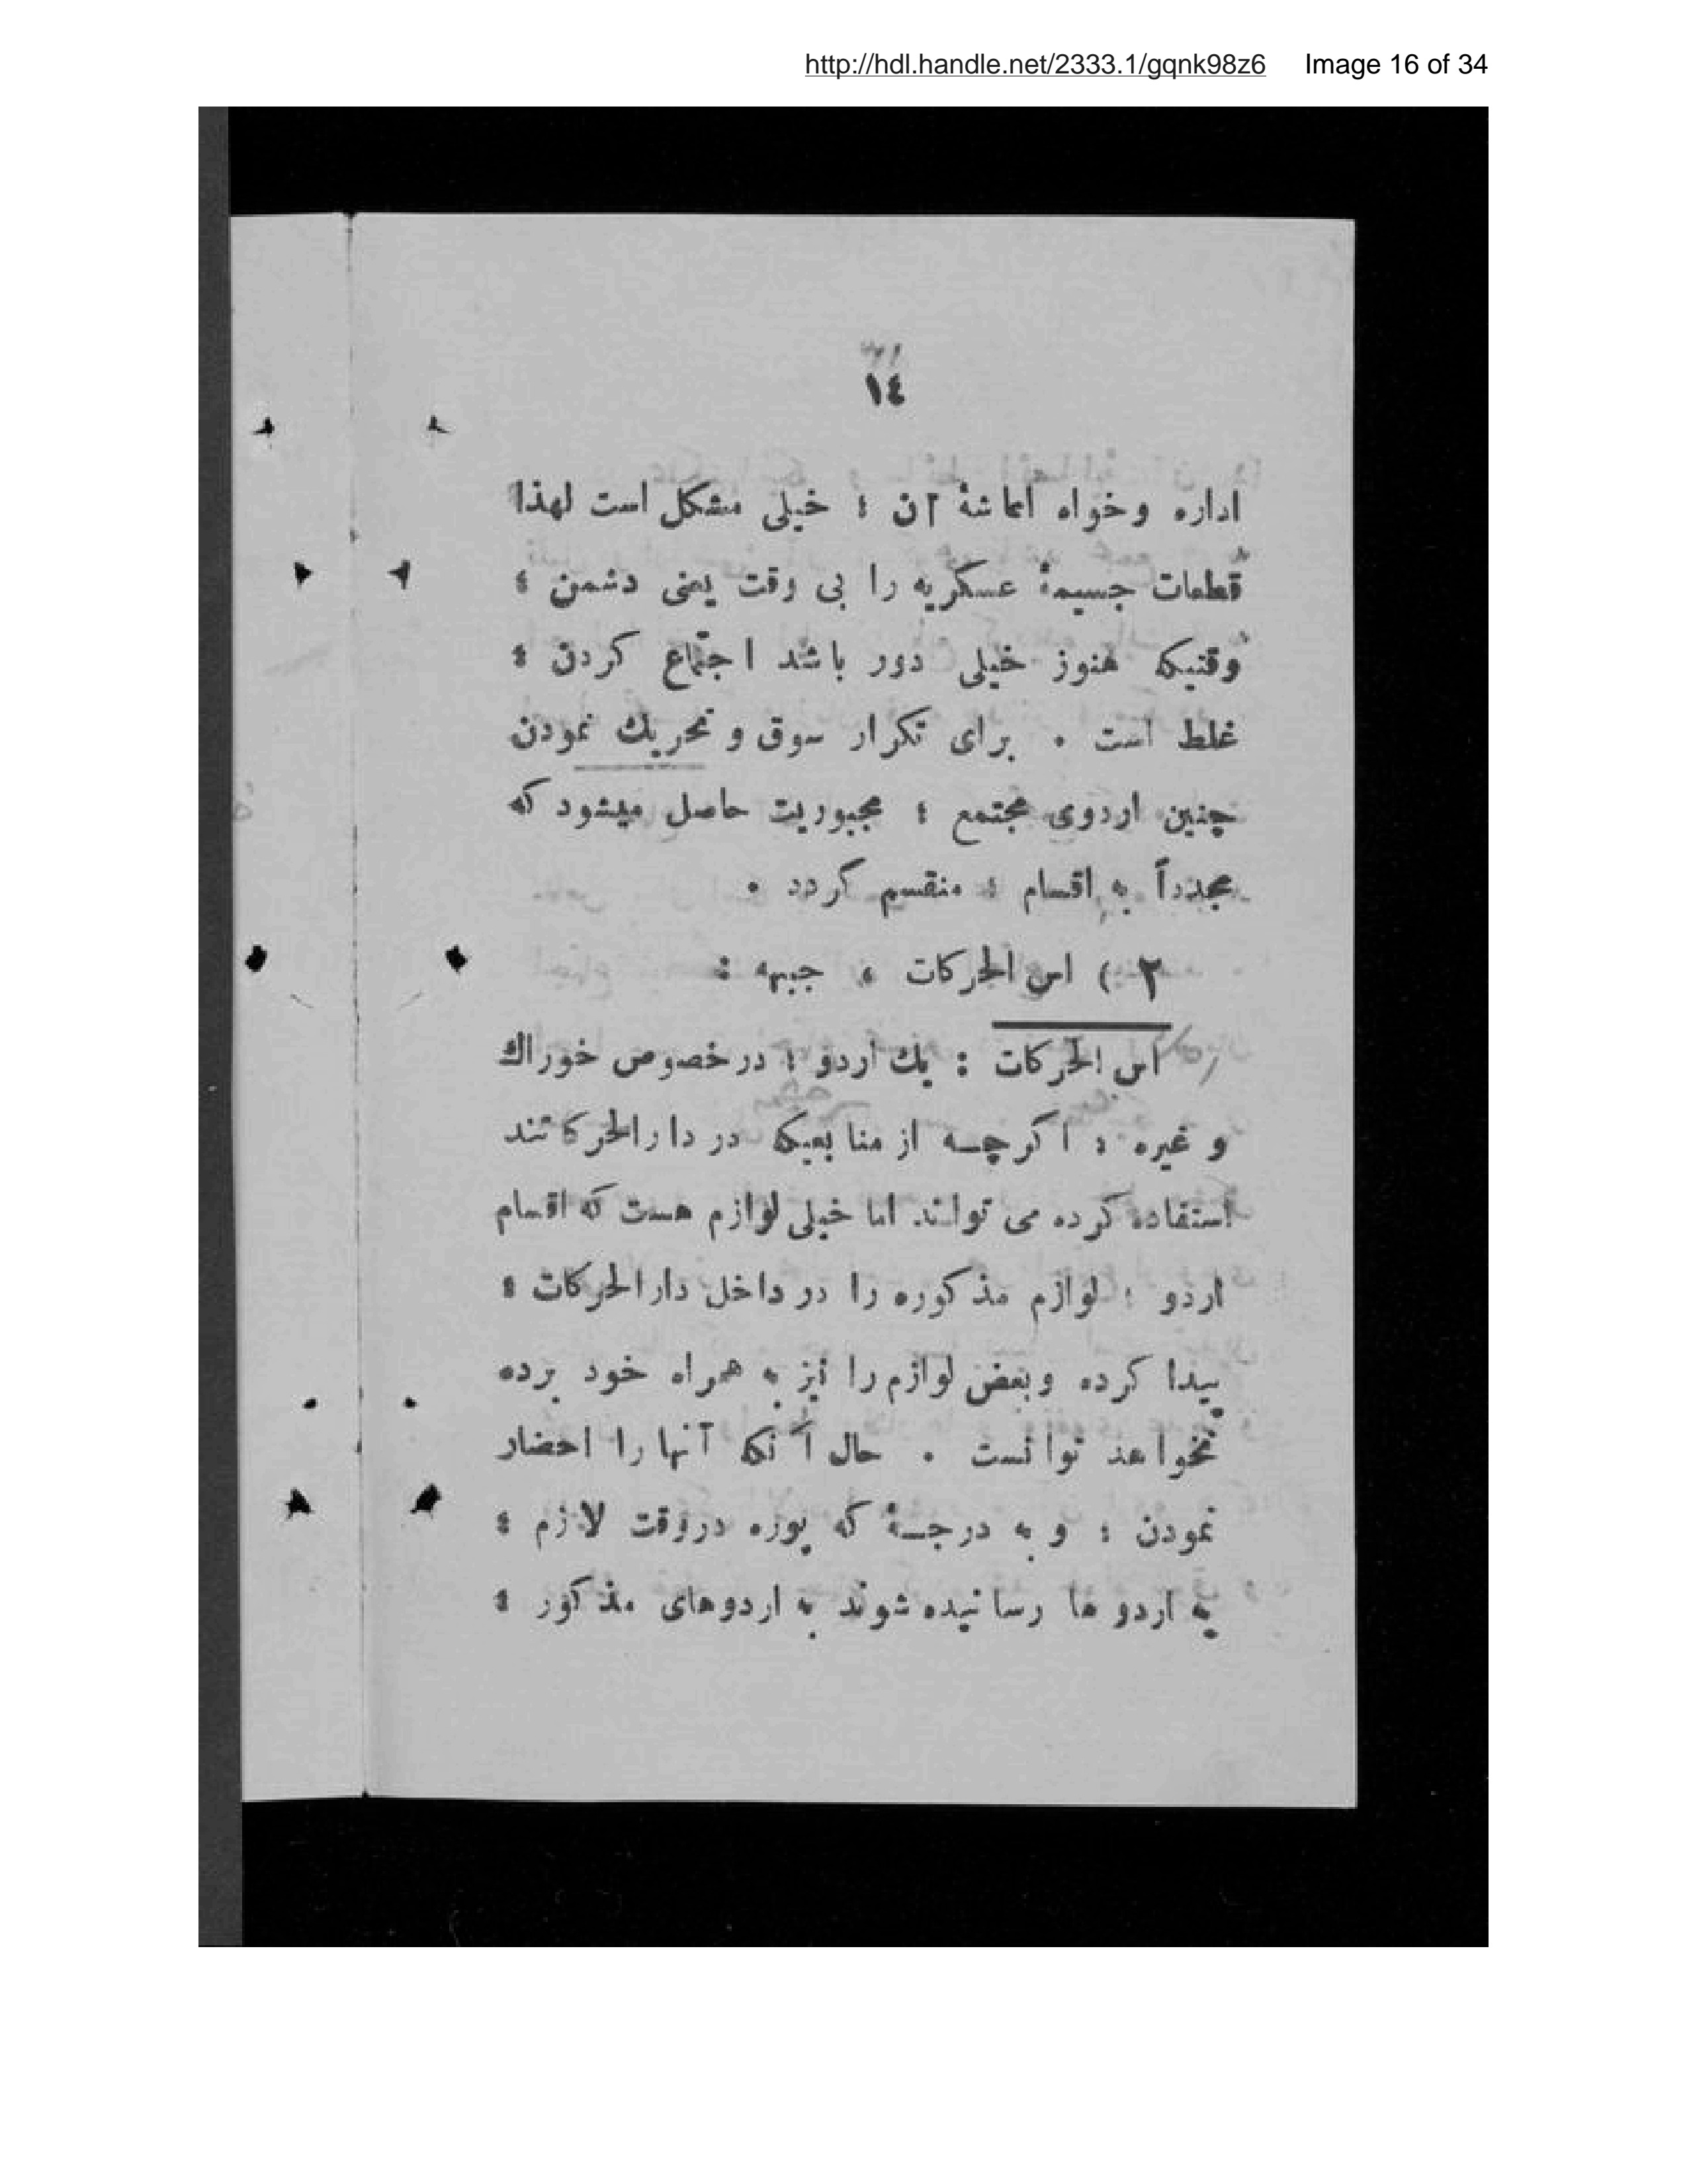 http://hdl.handle.net/2333.1/gqnk98z6 Image 16 of 34
١٤
اداره وخواه اعاشهٔ آن ؛ خیلی مشکل است لهذا
قطعات جسیمهٔ عسکریه را بی وقت یعنی دشمن ؛
وقتیکه هنوز خیلی دور باشد اجتماع کردن ؛
غلط است . برای تکرار سوق و تحریك نمودن
چنین اردوی مجتمع ؛ مجبوریت حاصل میشود که
مجدداً به اقسام ؛ منقسم کردد .
٢ ) اس الحرکات ، جبهه :
اس الحرکات : یك اردو ؛ در خصوص خوراك
و غیره ؛ اکر چه از منابعیکه در دارالحرکاتند
استفاده کرده می تواند. اما خیلی لوازم هست که اقسام
اردو ؛ لوازم مذکوره را در داخل دارالحرکات ؛
پیدا کرده وبعض لوازم را نیز به همراه خود برده
نخواهند توانست . حال آنکه آنها را احضار
نمودن ؛ و به درجهٔ که پوره دروقت لازم ؛
به اردو ها رسانیده شوند به اردوهای مذکور ؛